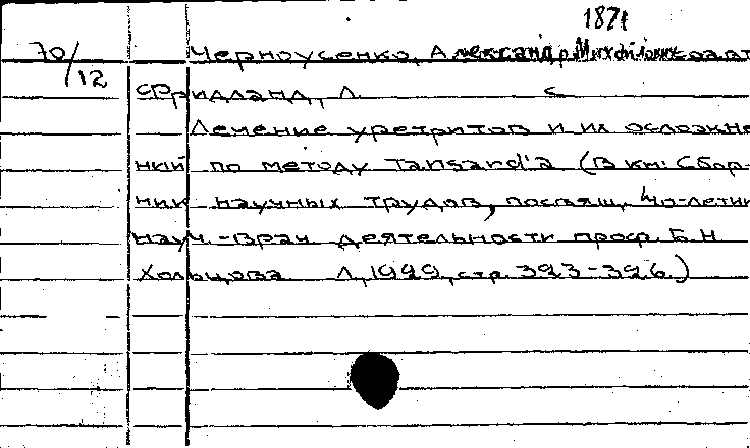 1871
70/12 Черноусенко, Александр Михайлович соавт
Фридланд, Л. с
Лечение уретритов и их осложне
ний по методу Tansard'a (В кн: Сбор-
ник научных трудов, посвящ. 40-летию
науч.-врач деятельности проф. Б.Н
Хольцова Л, 1929, стр. 323-326.)